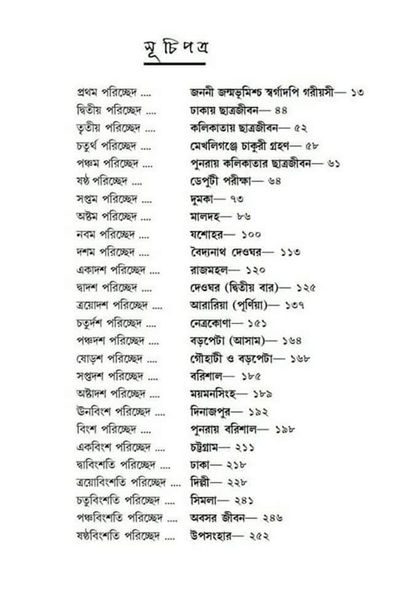 সূচিপত্র
প্রথম পরিচ্ছেদ .... জননী জন্মভূমিশ্চ স্বর্গাদপি গরীয়সী— ১৩
দ্বিতীয় পরিচ্ছেদ .... ঢাকায় ছাত্রজীবন— ৪৪
তৃতীয় পরিচ্ছেদ .... কলিকাতায় ছাত্রজীবন— ৫২
চতুর্থ পরিচ্ছেদ .... মেখলিগঞ্জে চাকুরী গ্রহণ— ৫৮
পঞ্চম পরিচ্ছেদ .... পুনরায় কলিকাতার ছাত্রজীবন— ৬১
ষষ্ঠ পরিচ্ছেদ .... ডেপুটী পরীক্ষা— ৬৪
সপ্তম পরিচ্ছেদ .... দুমকা— ৭৩
অষ্টম পরিচ্ছেদ .... মালদহ— ৮৬
নবম পরিচ্ছেদ .... যশোহর— ১০০
দশম পরিচ্ছেদ .... বৈদ্যনাথ দেওঘর— ১১৩
একাদশ পরিচ্ছেদ .... রাজমহল— ১২০
দ্বাদশ পরিচ্ছেদ .... দেওঘর (দ্বিতীয় বার)— ১২৫
ত্রয়োদশ পরিচ্ছেদ .... আরারিয়া (পূর্ণিয়া)— ১৩৭
চতুর্দশ পরিচ্ছেদ .... নেত্রকোণা— ১৫১
পঞ্চদশ পরিচ্ছেদ .... বড়পেটা (আসাম)— ১৬৪
ষোড়শ পরিচ্ছেদ .... গৌহাটী ও বড়পেটা— ১৬৮
সপ্তদশ পরিচ্ছেদ .... বরিশাল— ১৮৫
অষ্টাদশ পরিচ্ছেদ .... ময়মনসিংহ— ১৮৯
ঊনবিংশ পরিচ্ছেদ .... দিনাজপুর— ১৯২
বিংশ পরিচ্ছেদ .... পুনরায় বরিশাল— ১৯৮
একবিংশ পরিচ্ছেদ .... চট্টগ্রাম— ২১১
দ্বাবিংশতি পরিচ্ছেদ .... ঢাকা— ২১৮
ত্রয়োবিংশতি পরিচ্ছেদ .... দিল্লী— ২২৮
চতুবিংশতি পরিচ্ছেদ .... সিমলা— ২৪১
পঞ্চবিংশতি পরিচ্ছেদ .... অবসর জীবন— ২৪৬
ষষ্ঠবিংশতি পরিচ্ছেদ .... উপসংহার— ২৫২